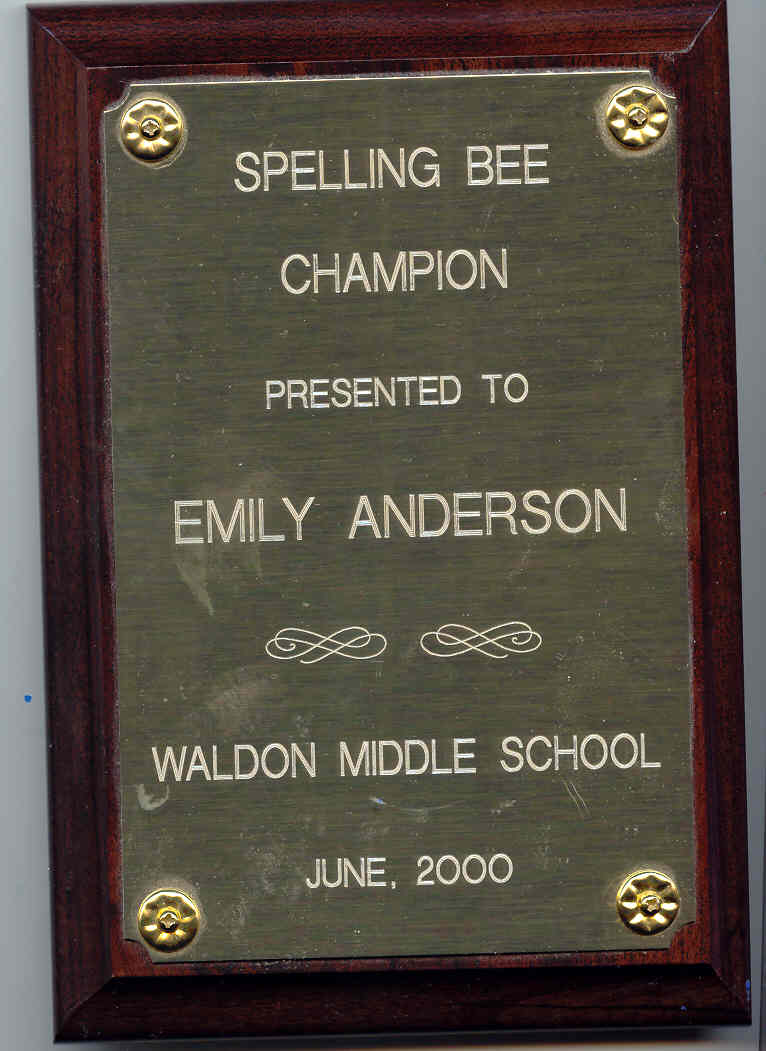 SPELLING BEE
CHAMPION
PRESENTED TO
EMILY ANDERSON
WALDON MIDDLE SCHOOL
JUNE, 2000